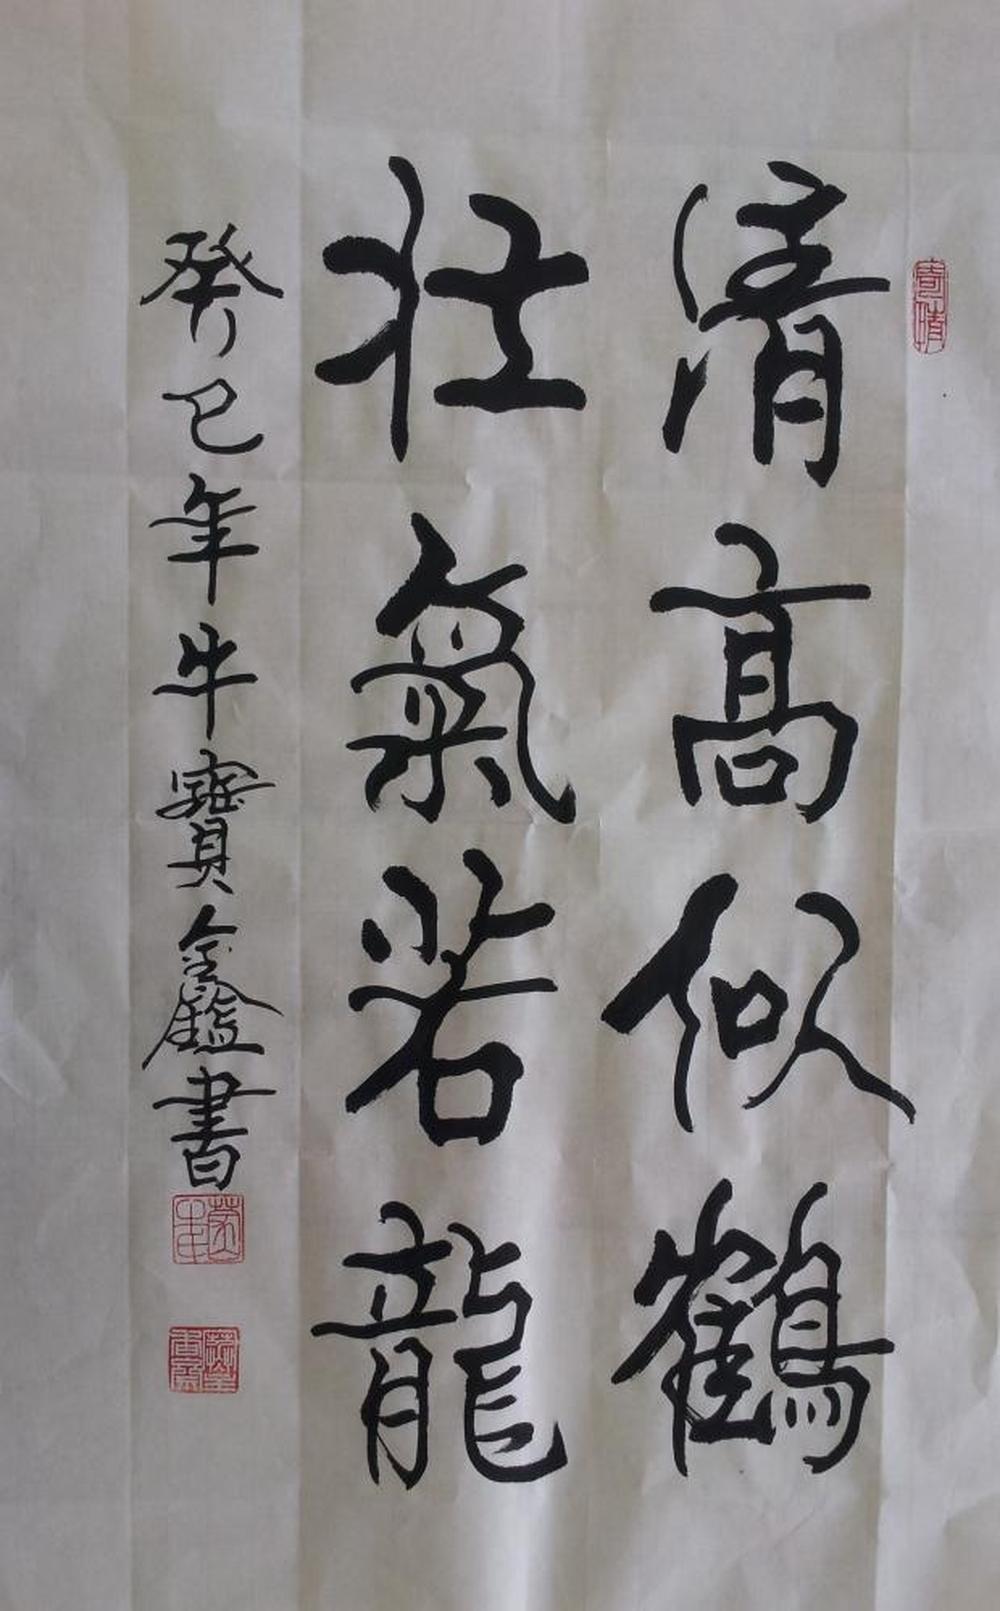 清高似鶴
壯氣若龍
癸巳年牛寶鑫書